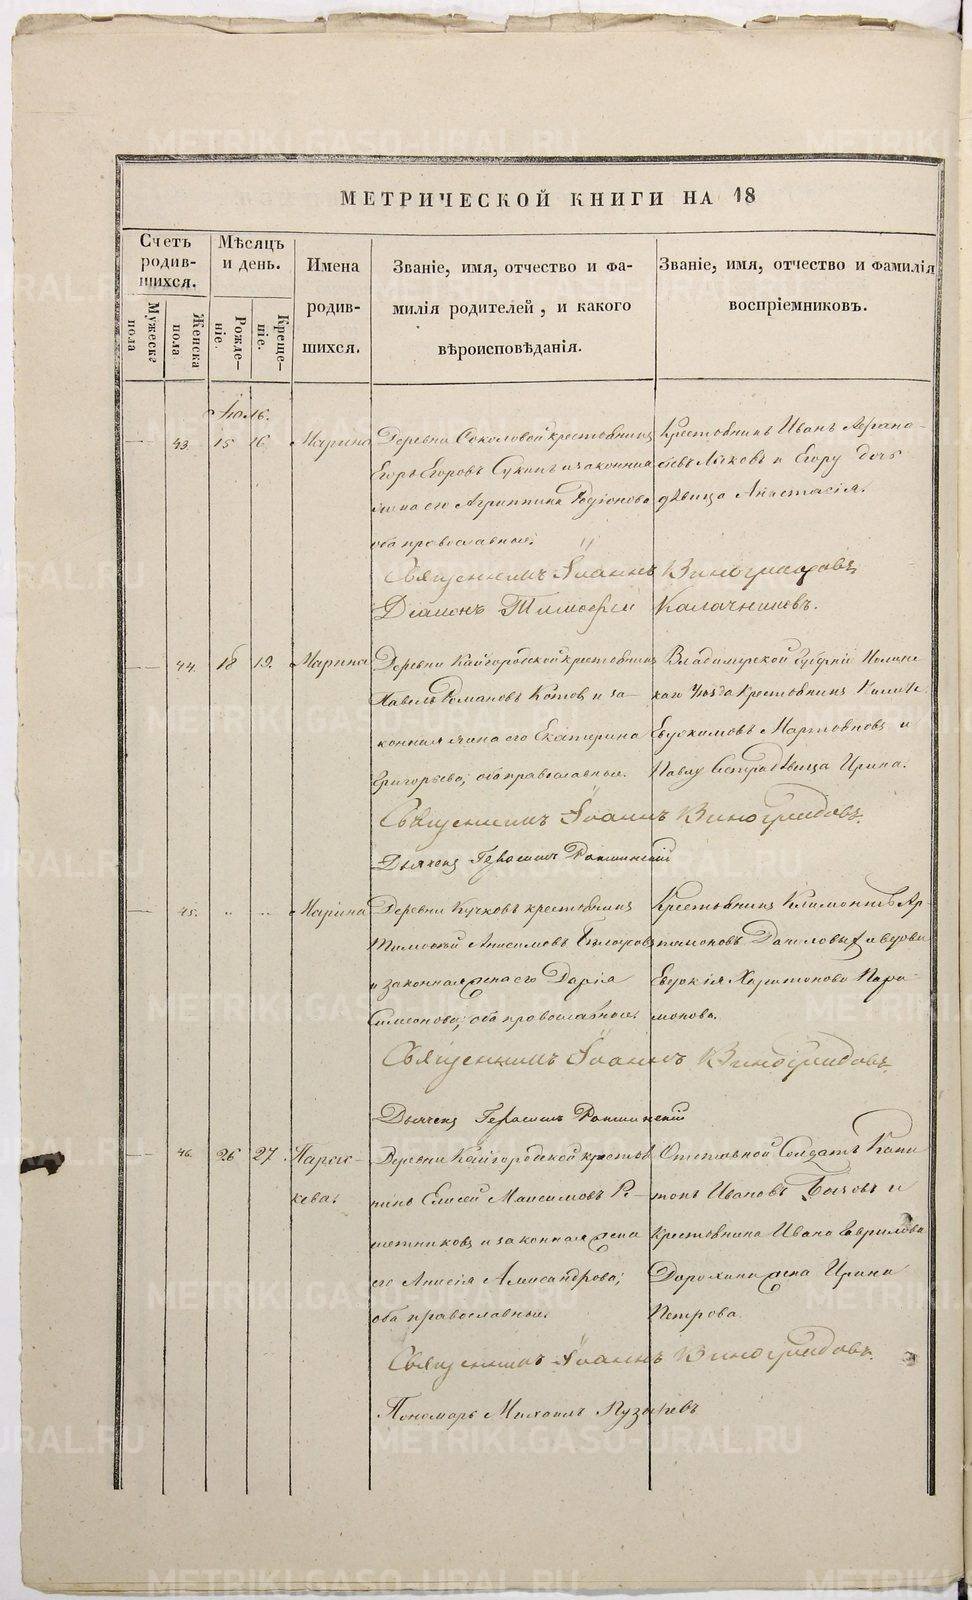 МЕТРИЧЕСКОЙ КНИГИ НА 18
Счетъ родив-шихся.
Мужеска пола
Женска пола
Мѣсяцъ и день.
Рожде-ніе.
Креще-ніе.
Имена родив-шихся.
Званіе, имя, отчество и фа-
милія родителей, и какого
вѣроисповѣданія.
Званіе, имя, отчество и фамилія
воспріемниковъ.
Іюль.
43. 15 16 Марина
Деревни Соколовой крестьянинъ
Егоръ Егоровъ Сукинъ и законная
жена его Агриппина Родіонова
оба православные.
Крестьянинъ Иванъ
и Егору дочь
дѣвица Анастасія.
Священникъ Іоаннъ Виноградовъ
Діаконъ Тимоѳей Калачниковъ.
44. 18 19. Марина
Деревни Кайгородской крестьянинъ
Павелъ Романовъ Котов и за-
конная жена его Екатерина
Григорьева; оба православные.
Владимирской Губерніи
каго Уѣзда Крестьянинъ
Евдокимовъ Мартьяновъ и
Павлу Сестра дѣвица Ирина.
Священникъ Іоаннъ Виноградовъ.
Дьячекъ Герасимъ
45. " " Марина
Деревни Кучковъ крестьянинъ
Тимоѳей Анисимовъ
и законная жена его Дарія
Симеонова; оба православные.
Крестьянинъ Климентъ Ар-
тамоновъ Даниловыхъ и вдова
Евдокія Харитонова Пара-
монова.
Священникъ Іоаннъ Виноградовъ.
Дьячекъ Герасимъ
46. 26 27. Парас-
кева.
Деревни Кайгородской крестья-
нинъ Елисей Максимовъ Рѣ-
шетниковъ и законная жена
его Анисія Александрова;
оба православные.
Отставной Солдатъ Капи-
тонъ Ивановъ Бычовъ и
Крестьянина Ивана Гаврилова
Дорохина жена Ирина
Петрова.
Священникъ Іоаннъ Виноградовъ.
Пономарь Михаилъ Пузыревъ
METRIKI.GASO-URAL.RU